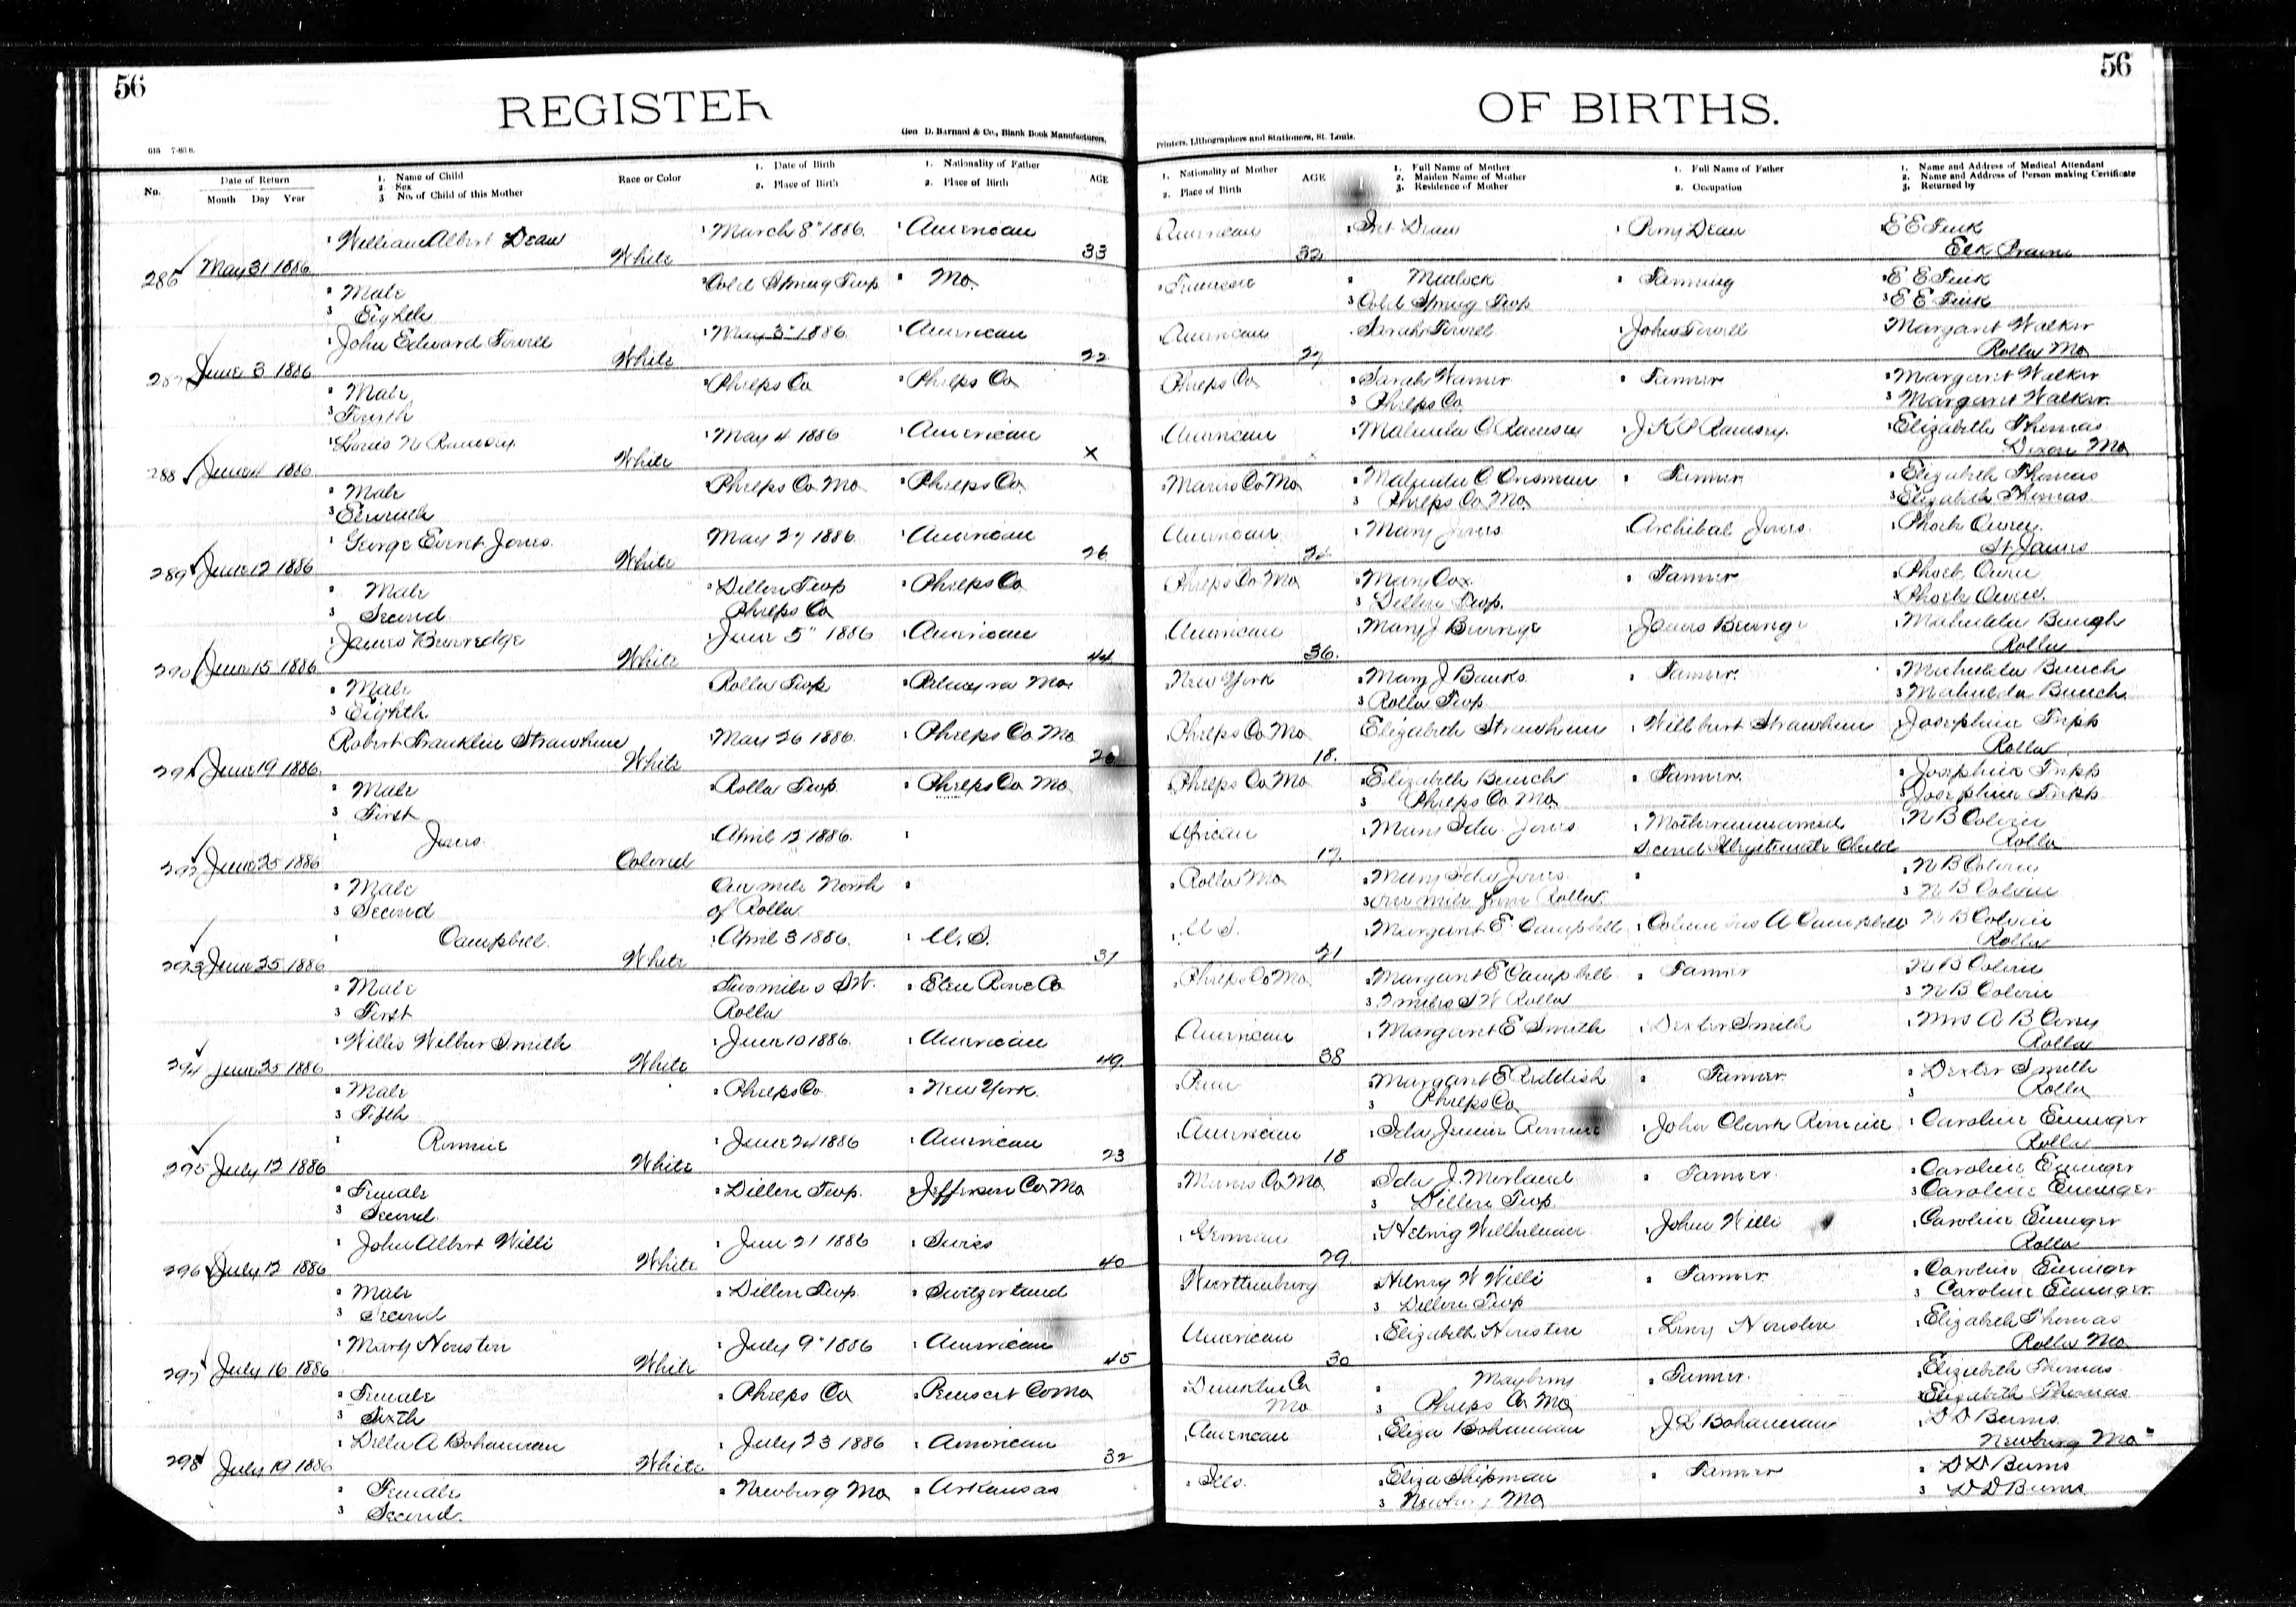 56
REGISTER
Geo D. Barnard & Co., Blank Book Manufacturers,
615 7-83 8.
No.
Date of Return
Month Day Year
1. Name of Child
2. Sex
3 No. of Child of this Mother
Race or Color
1. Date of Birth
2. Place of Birth
1. Nationality of Father
2. Place of Birth
AGE
286 May 31 1886
1 William Albert Dean
2 Male
3 Eighth
White
1 March 8" 1886.
2 Cold Spring Twp
1 American
2 Mo.
33
287 June 3 1886
1 John Edward
2 Male
3 Fourth
White
1 May 3" 1886.
2 Phelps Co
1 American
2 Phelps Co
22
288 June 4 1886
1 Louis N Ramsey
2 Male
3
White
1 May 4 1886
2 Phelps Co Mo
1 American
2 Phelps Co
x
289 June 12 1886
1 George Everet Jones.
2 Male
3 Second
White
May 27 1886
2 Dillen Twp
Phelps Co
1 American
2 Phelps Co
26
290 June 15 1886
1 James
2 Male
3 Eighth
White
1 June 5" 1886
Rolla Twp
1 American
2 Palmyra Mo
44
291 June 19 1886.
Robert Franklin Strawhun
2 Male
3 First
White
May 26 1886.
2 Rolla Twp
1 Phelps Co Mo
2 Phelps Co Mo
292 June 25 1886
1 Jones
2 Male
3 Second
Colored
1 April 12 1886.
One mile North
of Rolla
1
2
293 June 25 1886
1 Campbell.
2 Male
3 First
White
1 April 3 1886.
Two miles S.W.
Rolla
1 U. S.
31
294 June 25 1886
1 Willis Wilber Smith
2 Male
3 Fifth
White
1 June 10 1886.
2 Phelps Co
1 American
2 New York.
49.
295 July 12 1886
1
2 Female
3 Second.
White
1 June 24 1886
2 Dillen Twp.
1 American
2 Jefferson Co Mo
23
296 July 12 1886
1 John Albert Willi
2 Male
3 Second
White
1 June 21 1886
2 Dillen Twp
1 Swiss
2 Switzerland
40
297 July 16 1886
1 Mary Houston
2 Female
3 Sixth
White
1 July 9" 1886
2 Phelps Co
1 American
2
45
298 July 19 1886
1 Della A Bohannan
2 Female
3 Second.
White
1 July 23 1886
2 Newburg Mo
1 American
2 Arkansas
32
56
OF BIRTHS.
Printers, Lithographers and Stationers, St. Louis.
1. Nationality of Mother
2. Place of Birth
AGE
1. Full Name of Mother
2. Maiden Name of Mother
3. Residence of Mother
1. Full Name of Father
2. Occupation
1. Name and Address of Medical Attendant
2. Name and Address of Person making Certificate
3. Returned by
American
32
Dean
2 Matlock
3 Cold Spring Twp
1 Perry Dean
2 Farming
E E
Elk Prairie
2 E E
3 E E
American
27
1 Sarah
1 John
Margaret Walker
Rolla Mo
Phelps Co
2 Sarah
3 Phelps Co.
2 Farmer
2 Margaret Walker
3 Margaret Walker.
American
1 Malinda C Ramsey
J K P Ramsey.
1 Elizabeth Thomas
Dixon Mo
2 Maries Co Mo
2 Malinda C Crisman
3 Phelps Co Mo
2 Farmer
2 Elizabeth Thomas
3 Elizabeth Thomas.
American
1 Mary Jones
Archibal Jones.
1 Phoebe Owen.
St James
Phelps Co Mo
2 Mary Cox
3 Dillen Twp.
2 Farmer
2 Phoebe Owen
3 Phoebe Owen.
American
36.
1 Mary J
1 James
Rolla
2 New York
2 Mary J Banks
3 Rolla Twp
2 Farmer.
Phelps Co Mo
18.
Elizabeth Strawhun
1 Wilburt Strawhun
1 Josephine Tripp
Rolla
Phelps Co Mo
2 Elizabeth
3 Phelps Co Mo
2 Farmer.
2 Josephine Tripp
3 Josephine Tripp
African
17.
1 Mary Ida Jones
1 Mother unmarried
Second Illegitimate Child
N B
Rolla
2 Rolla Mo
2 Mary Ida Jones
3 one mile from Rolla
2
2 N B
3 N B
1 U S.
21
1 Margaret E Campbell
1 Columbus A Campbell
N B
Rolla
2 Phelps Co Mo
2 Margaret E Campbell
3 2 miles S W Rolla
2 Farmer
2 N B
3 N B
American
38
1 Margaret E Smith
1 Dexter Smith
1 Mrs A B
Rolla
2 Penn
2 Margaret E Reddish
3 Phelps Co
2 Farmer
2 Dexter Smith
3 Rolla
1 American
18
1 Ida Jennie
1 John Clark
1 Caroline
Rolla
2 Maries Co Mo
2 Ida J. Morland
3 Dillen Twp.
2 Farmer.
2 Caroline
3 Caroline
1 German
29.
1 Hedwig Wilhelmine
1 John Willi
1 Caroline
Rolla
W Willi
3 Dillen Twp
2 Farmer
2 Caroline
3 Caroline
American
30
1 Elizabeth Houston
1 Houston
1 Elizabeth Thomas
Rolla Mo
2 Dunklin Co
Mo
2 Mayberry
3 Phelps Co Mo
2 Farmer.
Elizabeth Thomas
Elizabeth Thomas
1 American
1 Eliza Bohannan
J L Bohannan
1 D D Burns.
Newburg Mo
2 Ills.
2 Eliza Shipman
3 Newburg Mo
2 Farmer
2 D D Burns
3 D D Burns